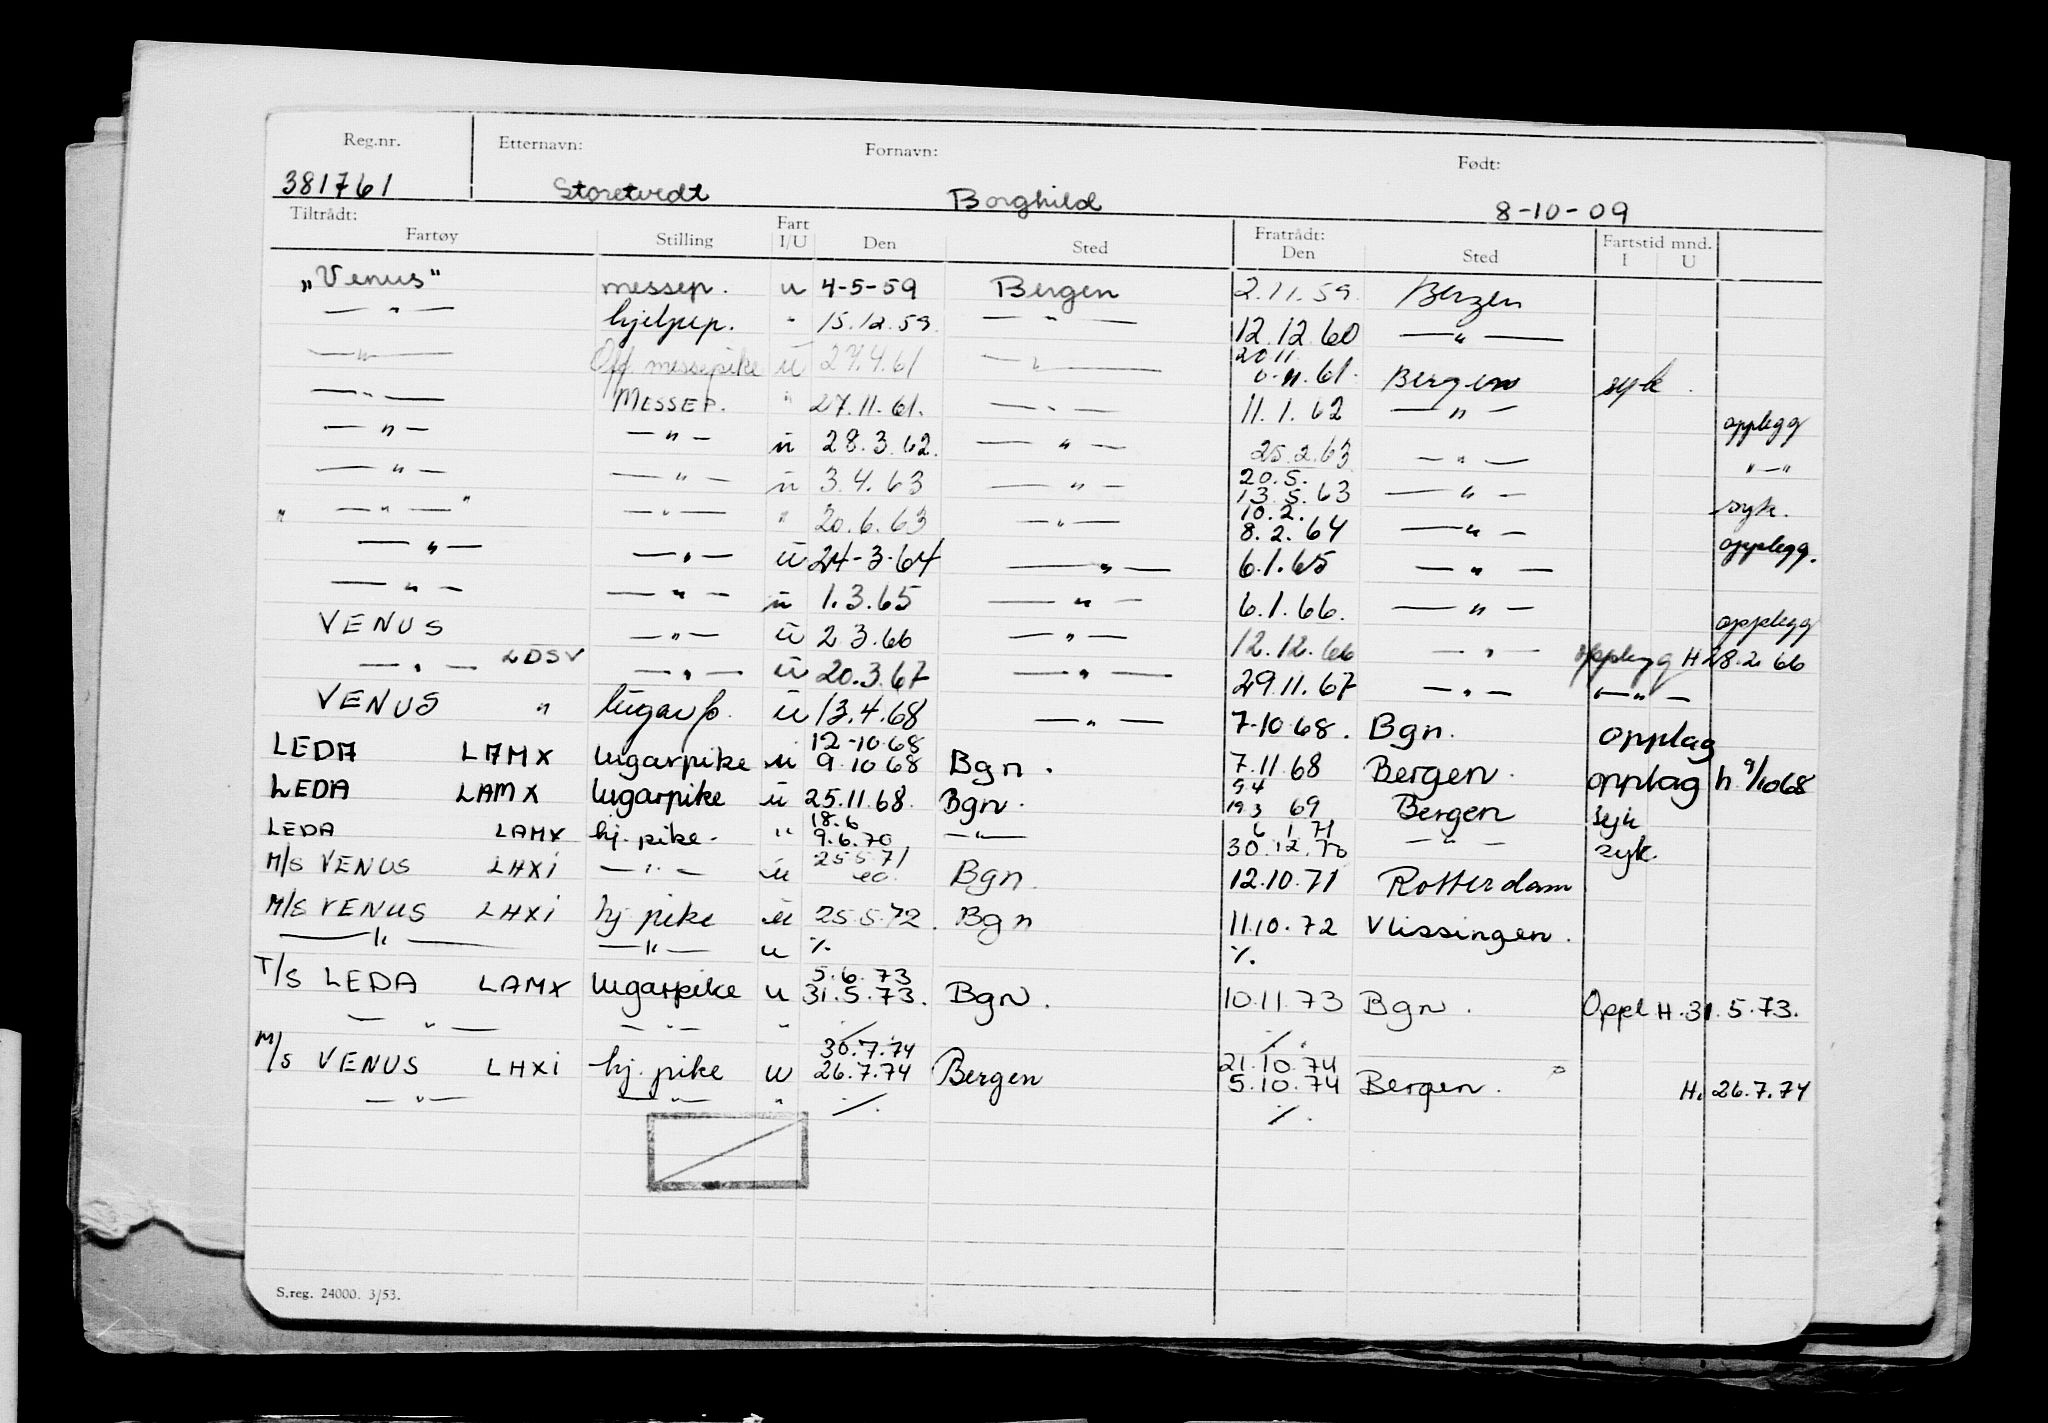 Reg.nr. Etternavn: Fornavn: Født:
381761 Storetvedt Borghild 8-10-09
Tiltrådt: Fartøy Stilling Fart I/U Den Sted Fratrådt: Den Sted Fartstid mnd. I U
„Venus" messep. u 4-5-59 Bergen 2.11.59. Bergen
—"— hjelpep. " 15.12.59. —"— 12.12.60 —"—
—"— Off. messepike u 27.4.61 —"— 20.11. 11.61. Bergen syk.
—"— MESSEP. " 27.11.61. —"— 11.1.62 —"— opplegg
—"— —"— u 28.3.62. —"— 25.2.63 —"— "—"
—"— —"— u 3.4.63 —"— 20.5. 13.5.63 —"— syk.
" —"—" —"— " 20.6.63 —"— 10.2. 8.2.64 —"— opplegg.
—"— —"— u 24-3-64 —"— 6.1.65 —"—
—"— —"— u 1.3.65 —"— 6.1.66. —"— opplegg
VENUS —"— u 2.3.66 —"— 12.12.66 —"— opplegg H 28.2.66
—"— LDSV —"— u 20.3.67 —"— 29.11.67 —"— —"—
VENUS " lugarp. u 13.4.68 —"— 7-10-68. Bgn. opplag
LEDA LAMX lugarpike u 12-10-68 9.10 68 Bgn. 7.11.68 Bergen. opplag h 9/1068
LEDA LAMX lugarpike u 25.11.68. Bgn. 9 4 19 3 69 Bergen syk
LEDA LAMX hj. pike. " 18.6 9.6.70 —"— 6 1 71 30.12.70 —"— syk.
M/S VENUS LHXI —"— u 25 5 71 Bgn. 12.10.71 Rotterdam
M/S VENUS LHXI hj pike u 25.5.72. Bgn 11.10.72 Vlissingen.
—"— —"— u %. %.
T/S LEDA LAMX lugarpike u 5.6.73 31.5.73. Bgn. 10.11.73 Bgn. Oppl H.31.5.73.
—"— —"— " %. %.
M/S VENUS LHXI hj. pike u 30.7.74 26.7.74 Bergen 21.10.74 5.10.74 Bergen. H. 26.7.74
—"— —"— " %. %.
S.reg. 24000. 3/53.